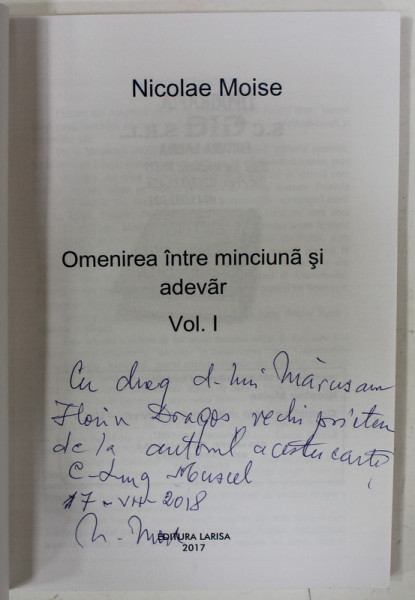 Nicolae Moise
Omenirea între minciună și
adevăr
Vol. I
Cu drag d-lui Mărusam
Florin Dragoș vechi prieten
de la autorul acestei carți
C-Lung Muscel
17-VII-2018
N. Mois
EDITURA LARISA
2017